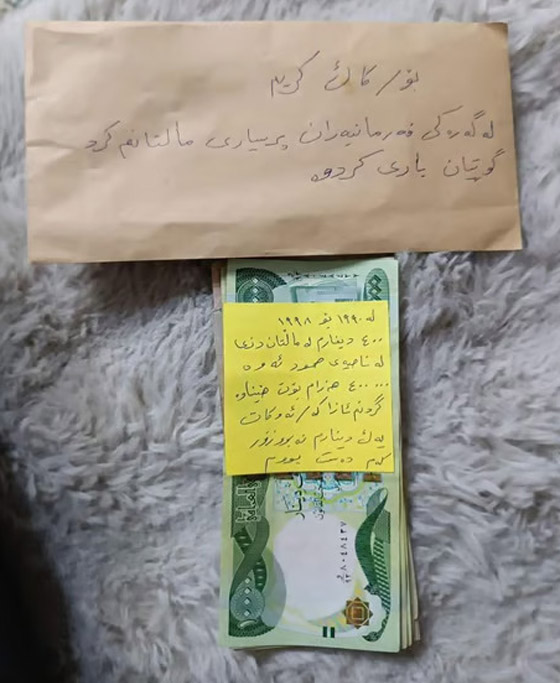 بۆ/ کاك کریم
لە گەرەکی فەرمانبەران پرسیاری ماڵتانم کرد
گوتیان باری کردوە
لە ١٩٩٠ بۆ ١٩٩٨
٤٠٠ دینارم لە ماڵتان دزی
لە ناحیەی صمود ئەوە
٤٠٠٠٠٠ هەزارم بۆت هێناوە
گردنم ئازا کە/ ئەو کات
یەك دینارم نەبوو زۆر
کەم دەست بووم
دينار
١٠٠٠٠
٨٠٤٨٤٣٧